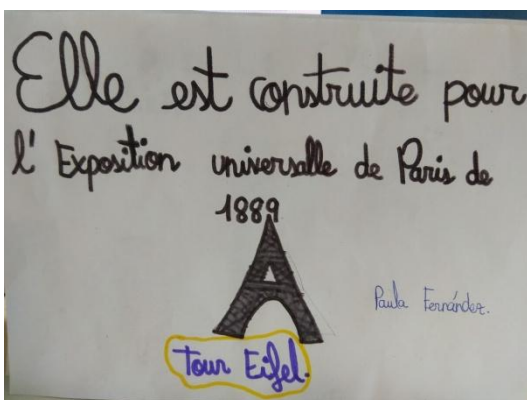 Elle est construite pour
l' Exposition universalle de Paris de
1889
Paula Fernández.
Tour Eifel.